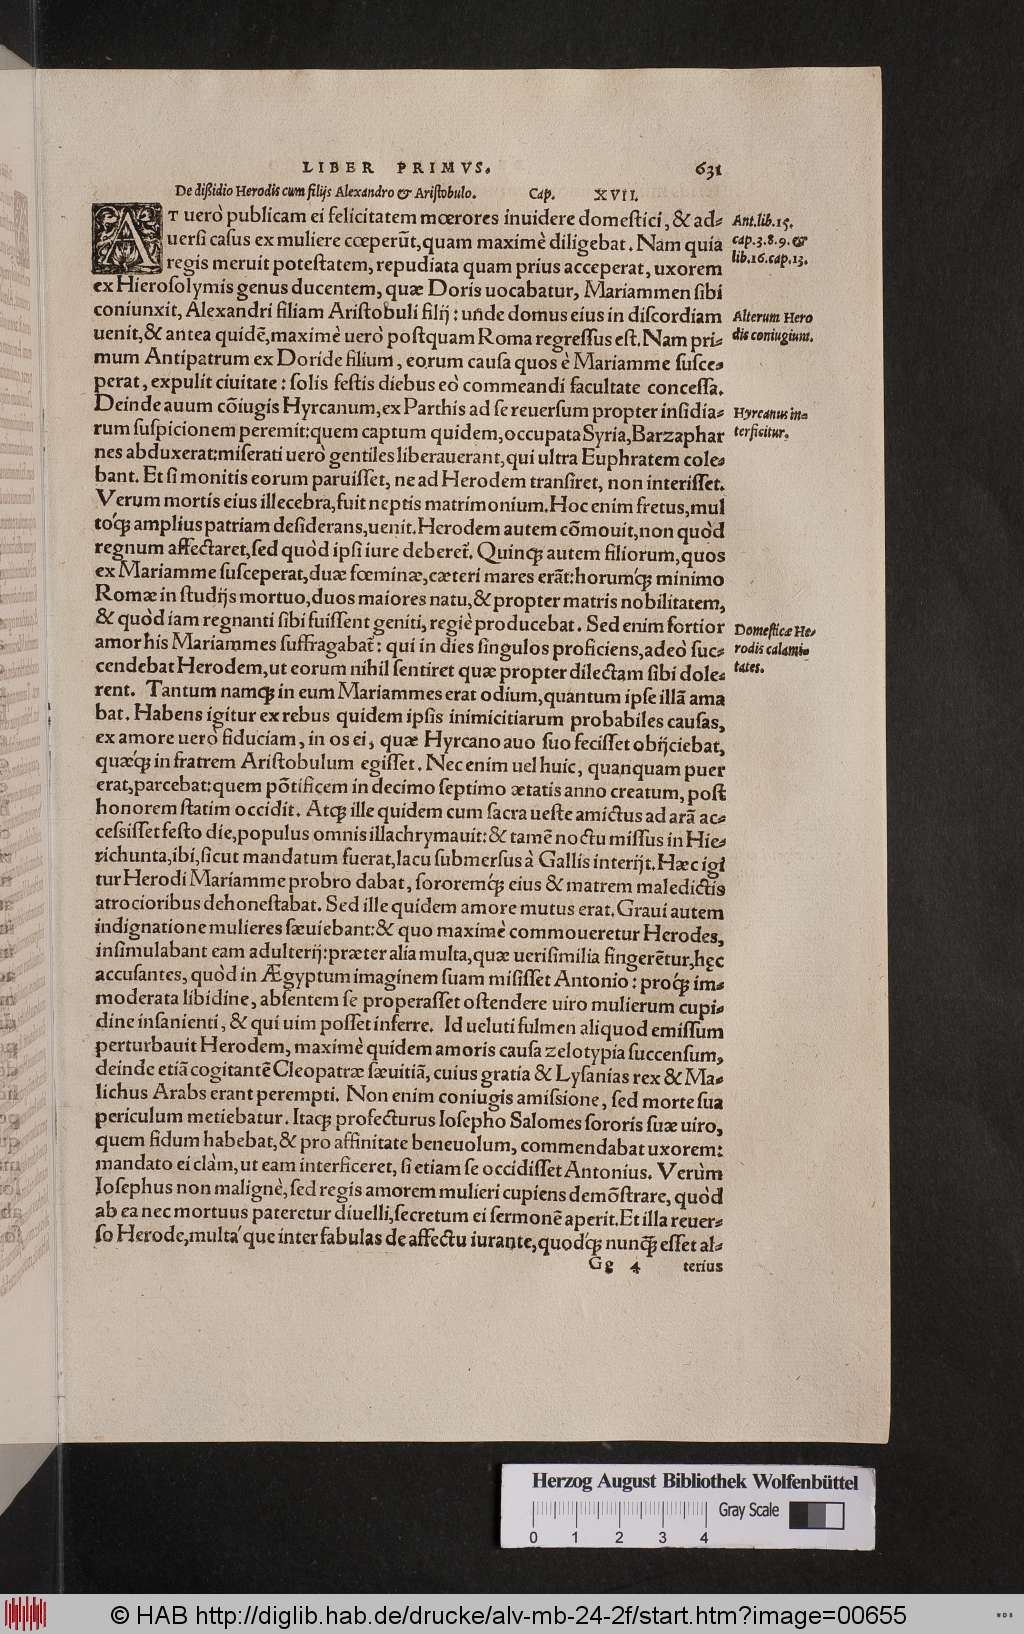 LIBER PRIMVS. 631
De dißidio Herodis cum filijs Alexandro & Aristobulo. Cap. XVII.
AT uerò publicam ei felicitatem mœrores inuidere domestici, & ad-
uersi casus ex muliere cœperũt, quam maximè diligebat. Nam quia
regis meruit potestatem, repudiata quam prius acceperat, uxorem
ex Hierosolymis genus ducentem, quæ Doris uocabatur, Mariammen sibi
coniunxit, Alexandri filiam Aristobuli filij: unde domus eius in discordiam
uenit, & antea quidẽ, maximè uerò postquam Roma regressus est. Nam pri-
mum Antipatrum ex Doride filium, eorum causa quos è Mariamme susce-
perat, expulit ciuitate: solis festis diebus eò commeandi facultate concessa.
Deinde auum cõiugis Hyrcanum, ex Parthis ad se reuersum propter insidia-
rum suspicionem peremit: quem captum quidem, occupata Syria, Barzaphar
nes abduxerat: miserati uerò gentiles liberauerant, qui ultra Euphratem cole-
bant. Et si monitis eorum paruisset, ne ad Herodem transiret, non interisset.
Verum mortis eius illecebra, fuit neptis matrimonium. Hoc enim fretus, mul
toq́ꝫ amplius patriam desiderans, uenit. Herodem autem cõmouit, non quòd
regnum affectaret, sed quòd ipsi iure deberet̃. Quinqꝫ autem filiorum, quos
ex Mariamme susceperat, duæ fœminæ, cæteri mares erãt: horumq́ꝫ minimo
Romæ in studijs mortuo, duos maiores natu, & propter matris nobilitatem,
& quòd iam regnanti sibi fuissent geniti, regiè producebat. Sed enim fortior
amor his Mariammes suffragabat̃: qui in dies singulos proficiens, adeò suc-
cendebat Herodem, ut eorum nihil sentiret quæ propter dilectam sibi dole-
rent. Tantum namqꝫ in eum Mariammes erat odium, quantum ipse illã ama
bat. Habens igitur ex rebus quidem ipsis inimicitiarum probabiles causas,
ex amore uerò fiduciam, in os ei, quæ Hyrcano auo suo fecisset obijciebat,
quæq́ꝫ in fratrem Aristobulum egisset. Nec enim uel huic, quanquam puer
erat, parcebat: quem põtificem in decimo septimo ætatis anno creatum, post
honorem statim occidit. Atqꝫ ille quidem cum sacra ueste amictus ad arã ac-
cessisset festo die, populus omnis illachrymauit: & tamẽ noctu missus in Hie-
richunta, ibi, sicut mandatum fuerat, lacu submersus à Gallis interijt. Hæc igi
tur Herodi Mariamme probro dabat, sororemq́ꝫ eius & matrem maledictis
atrocioribus dehonestabat. Sed ille quidem amore mutus erat. Graui autem
indignatione mulieres sæuiebant: & quo maximè commoueretur Herodes,
insimulabant eam adulterij: præter alia multa, quæ uerisimilia fingerẽtur, hęc
accusantes, quòd in Ægyptum imaginem suam misisset Antonio: proq́ꝫ im-
moderata libidine, absentem se properasset ostendere uiro mulierum cupi-
dine insanienti, & qui uim posset inferre. Id ueluti fulmen aliquod emissum
perturbauit Herodem, maximè quidem amoris causa zelotypia succensum,
deinde etiã cogitantẽ Cleopatræ sæuitiã, cuius gratia & Lysanias rex & Ma-
lichus Arabs erant perempti. Non enim coniugis amissione, sed morte sua
periculum metiebatur. Itaqꝫ profecturus Iosepho Salomes sororis suæ uiro,
quem fidum habebat, & pro affinitate beneuolum, commendabat uxorem:
mandato ei clàm, ut eam interficeret, si etiam se occidisset Antonius. Verùm
Iosephus non malignè, sed regis amorem mulieri cupiens demõstrare, quòd
ab ea nec mortuus pateretur diuelli, secretum ei sermonẽ aperit. Et illa reuer-
so Herode, multa que inter fabulas de affectu iurante, quodq́ꝫ nunqꝫ̃ esset al-
Gg 4 terius
Ant. lib. 15.
cap. 3. 8. 9. &
lib. 16. cap. 13.
Alterum Hero
dis coniugium.
Hyrcanus in-
terficitur.
Domesticæ He-
rodis calami-
tates.
Herzog August Bibliothek Wolfenbüttel
Gray Scale
0 1 2 3 4
© HAB http://diglib.hab.de/drucke/alv-mb-24-2f/start.htm?image=00655